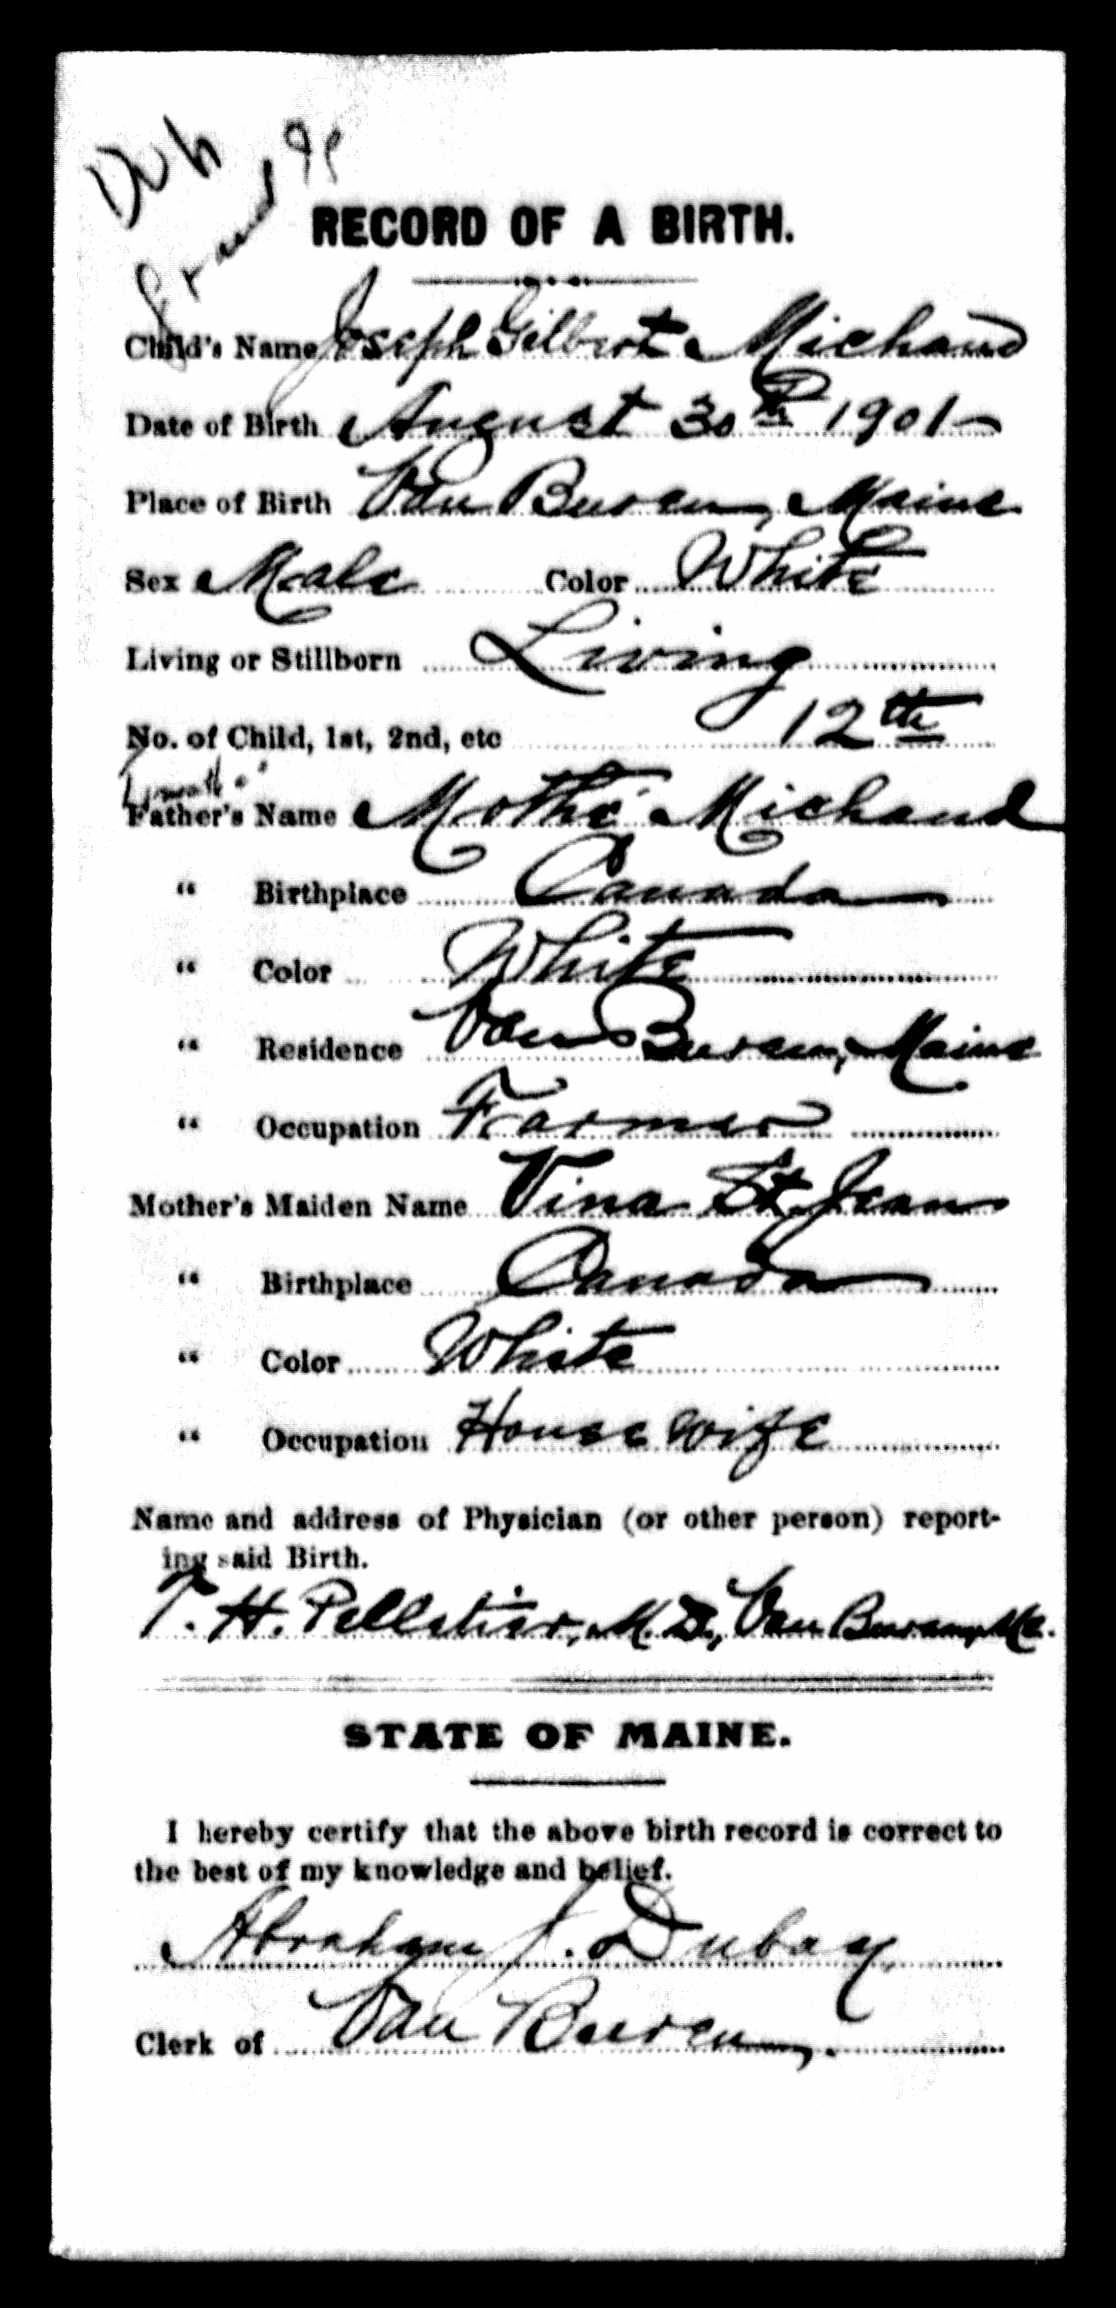 RECORD OF A BIRTH.
Child's Name Joseph Gilbert Michaud
Date of Birth August 30th 1901
Place of Birth Van Buren, Maine
Sex Male Color White
Living or Stillborn Living
No. of Child, 1st, 2nd, etc 12th
Father's Name Mothé Michaud
" Birthplace Canada
" Color White
" Residence Van Buren, Maine
" Occupation Farmer
Mother's Maiden Name Vina St. Jean
" Birthplace Canada
" Color White
" Occupation House wife
Name and address of Physician (or other person) report-
ing said Birth.
T. H. Pelletier, M. D., Van Buren, Me.
STATE OF MAINE.
I hereby certify that the above birth record is correct to
the best of my knowledge and belief.
Abraham J. Dubay
Clerk of Van Buren,